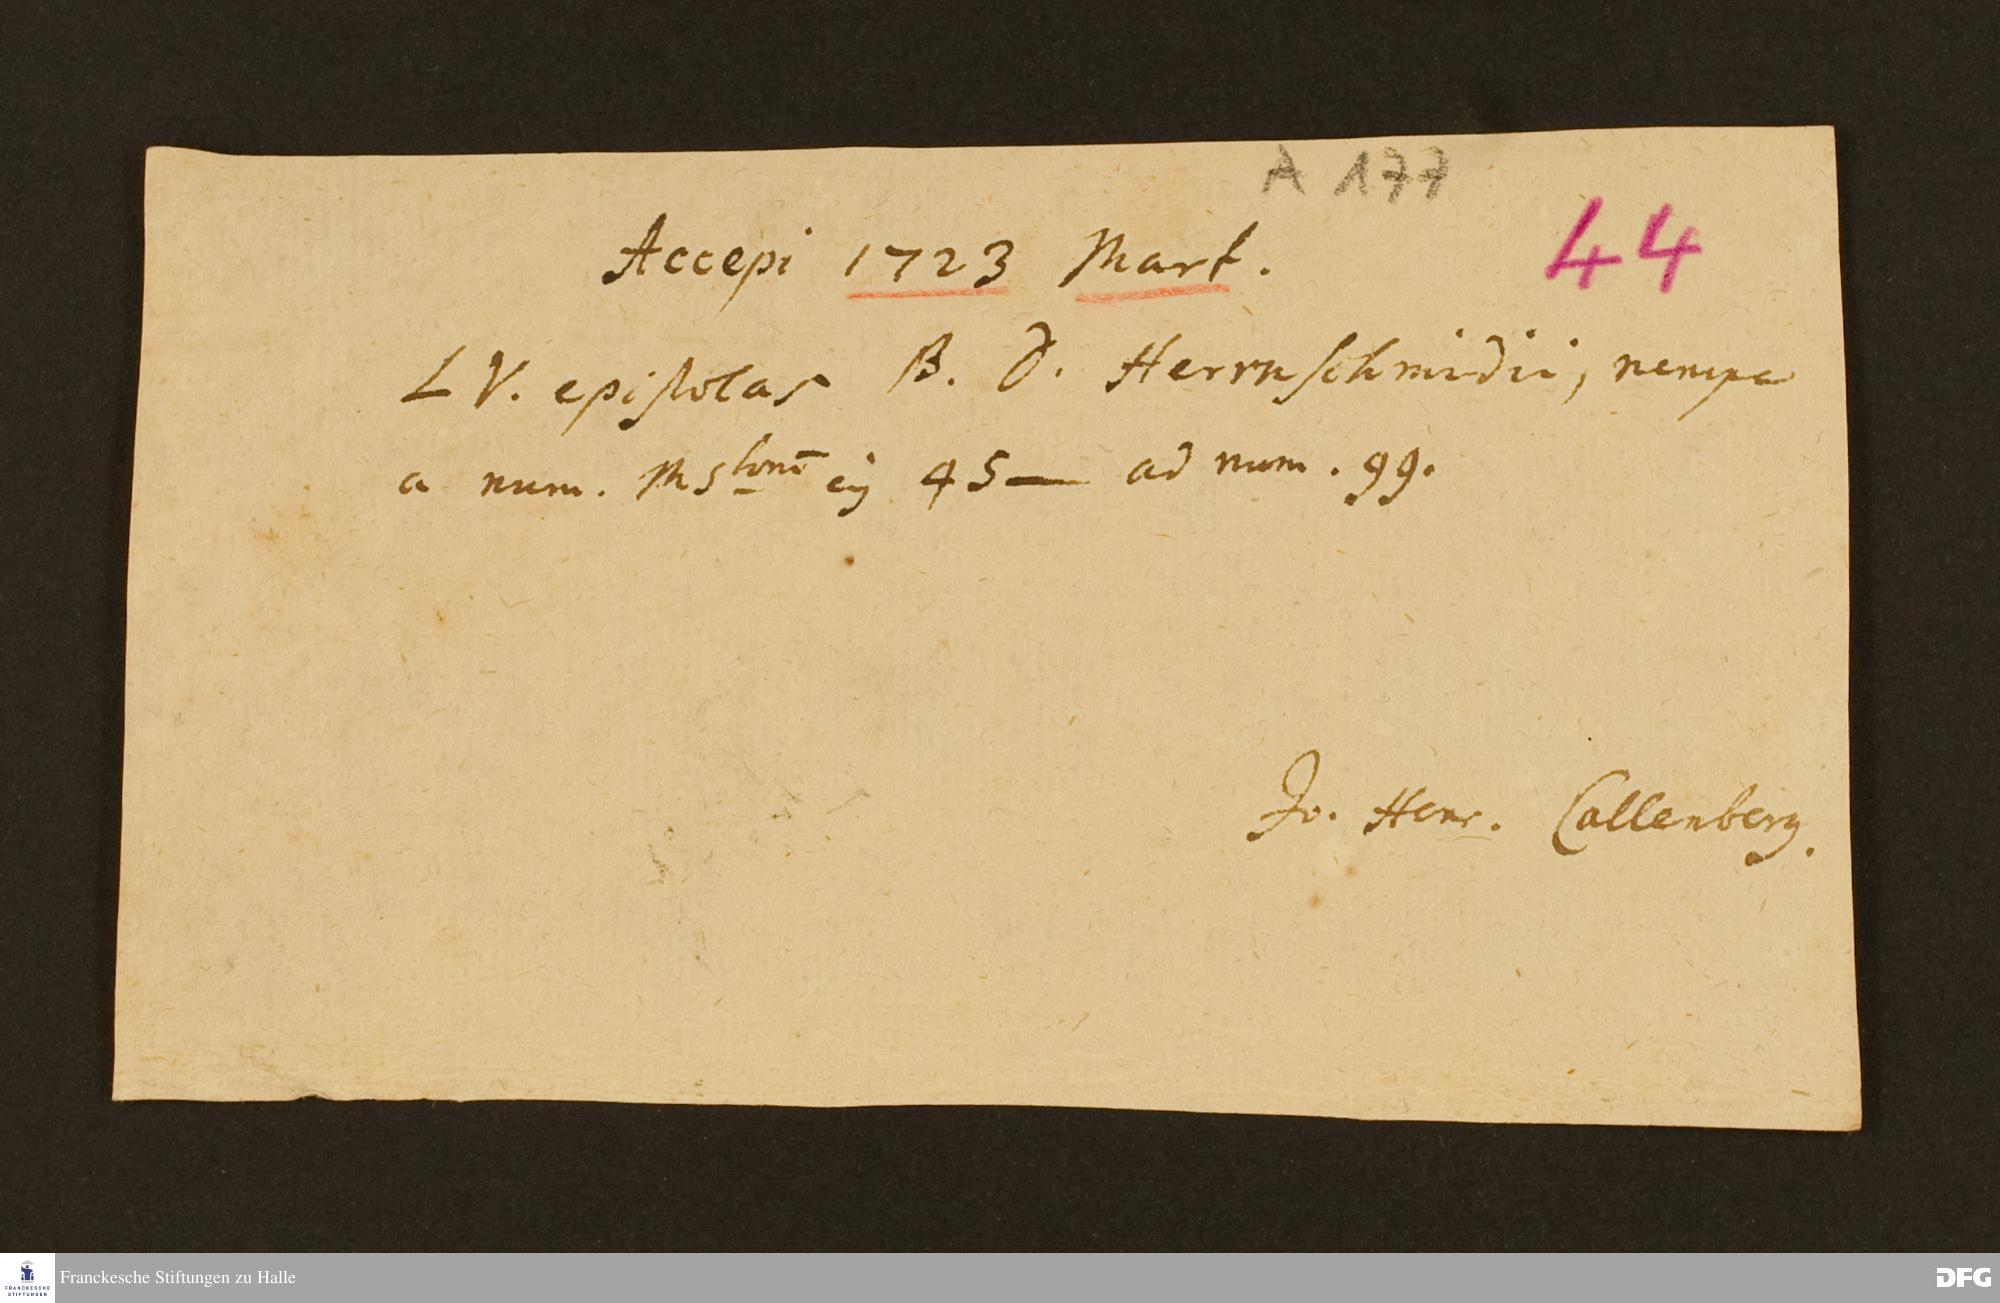 A 177
44
Accepi 1723 Mart.
LV. epistolas B. D. Herrnschmidii, nempe
a num. 45 — ad num. 99.
Jo. Henr. Callenberg.
FRANCKESCHE
STIFTUNGEN
Franckesche Stiftungen zu Halle
DFG